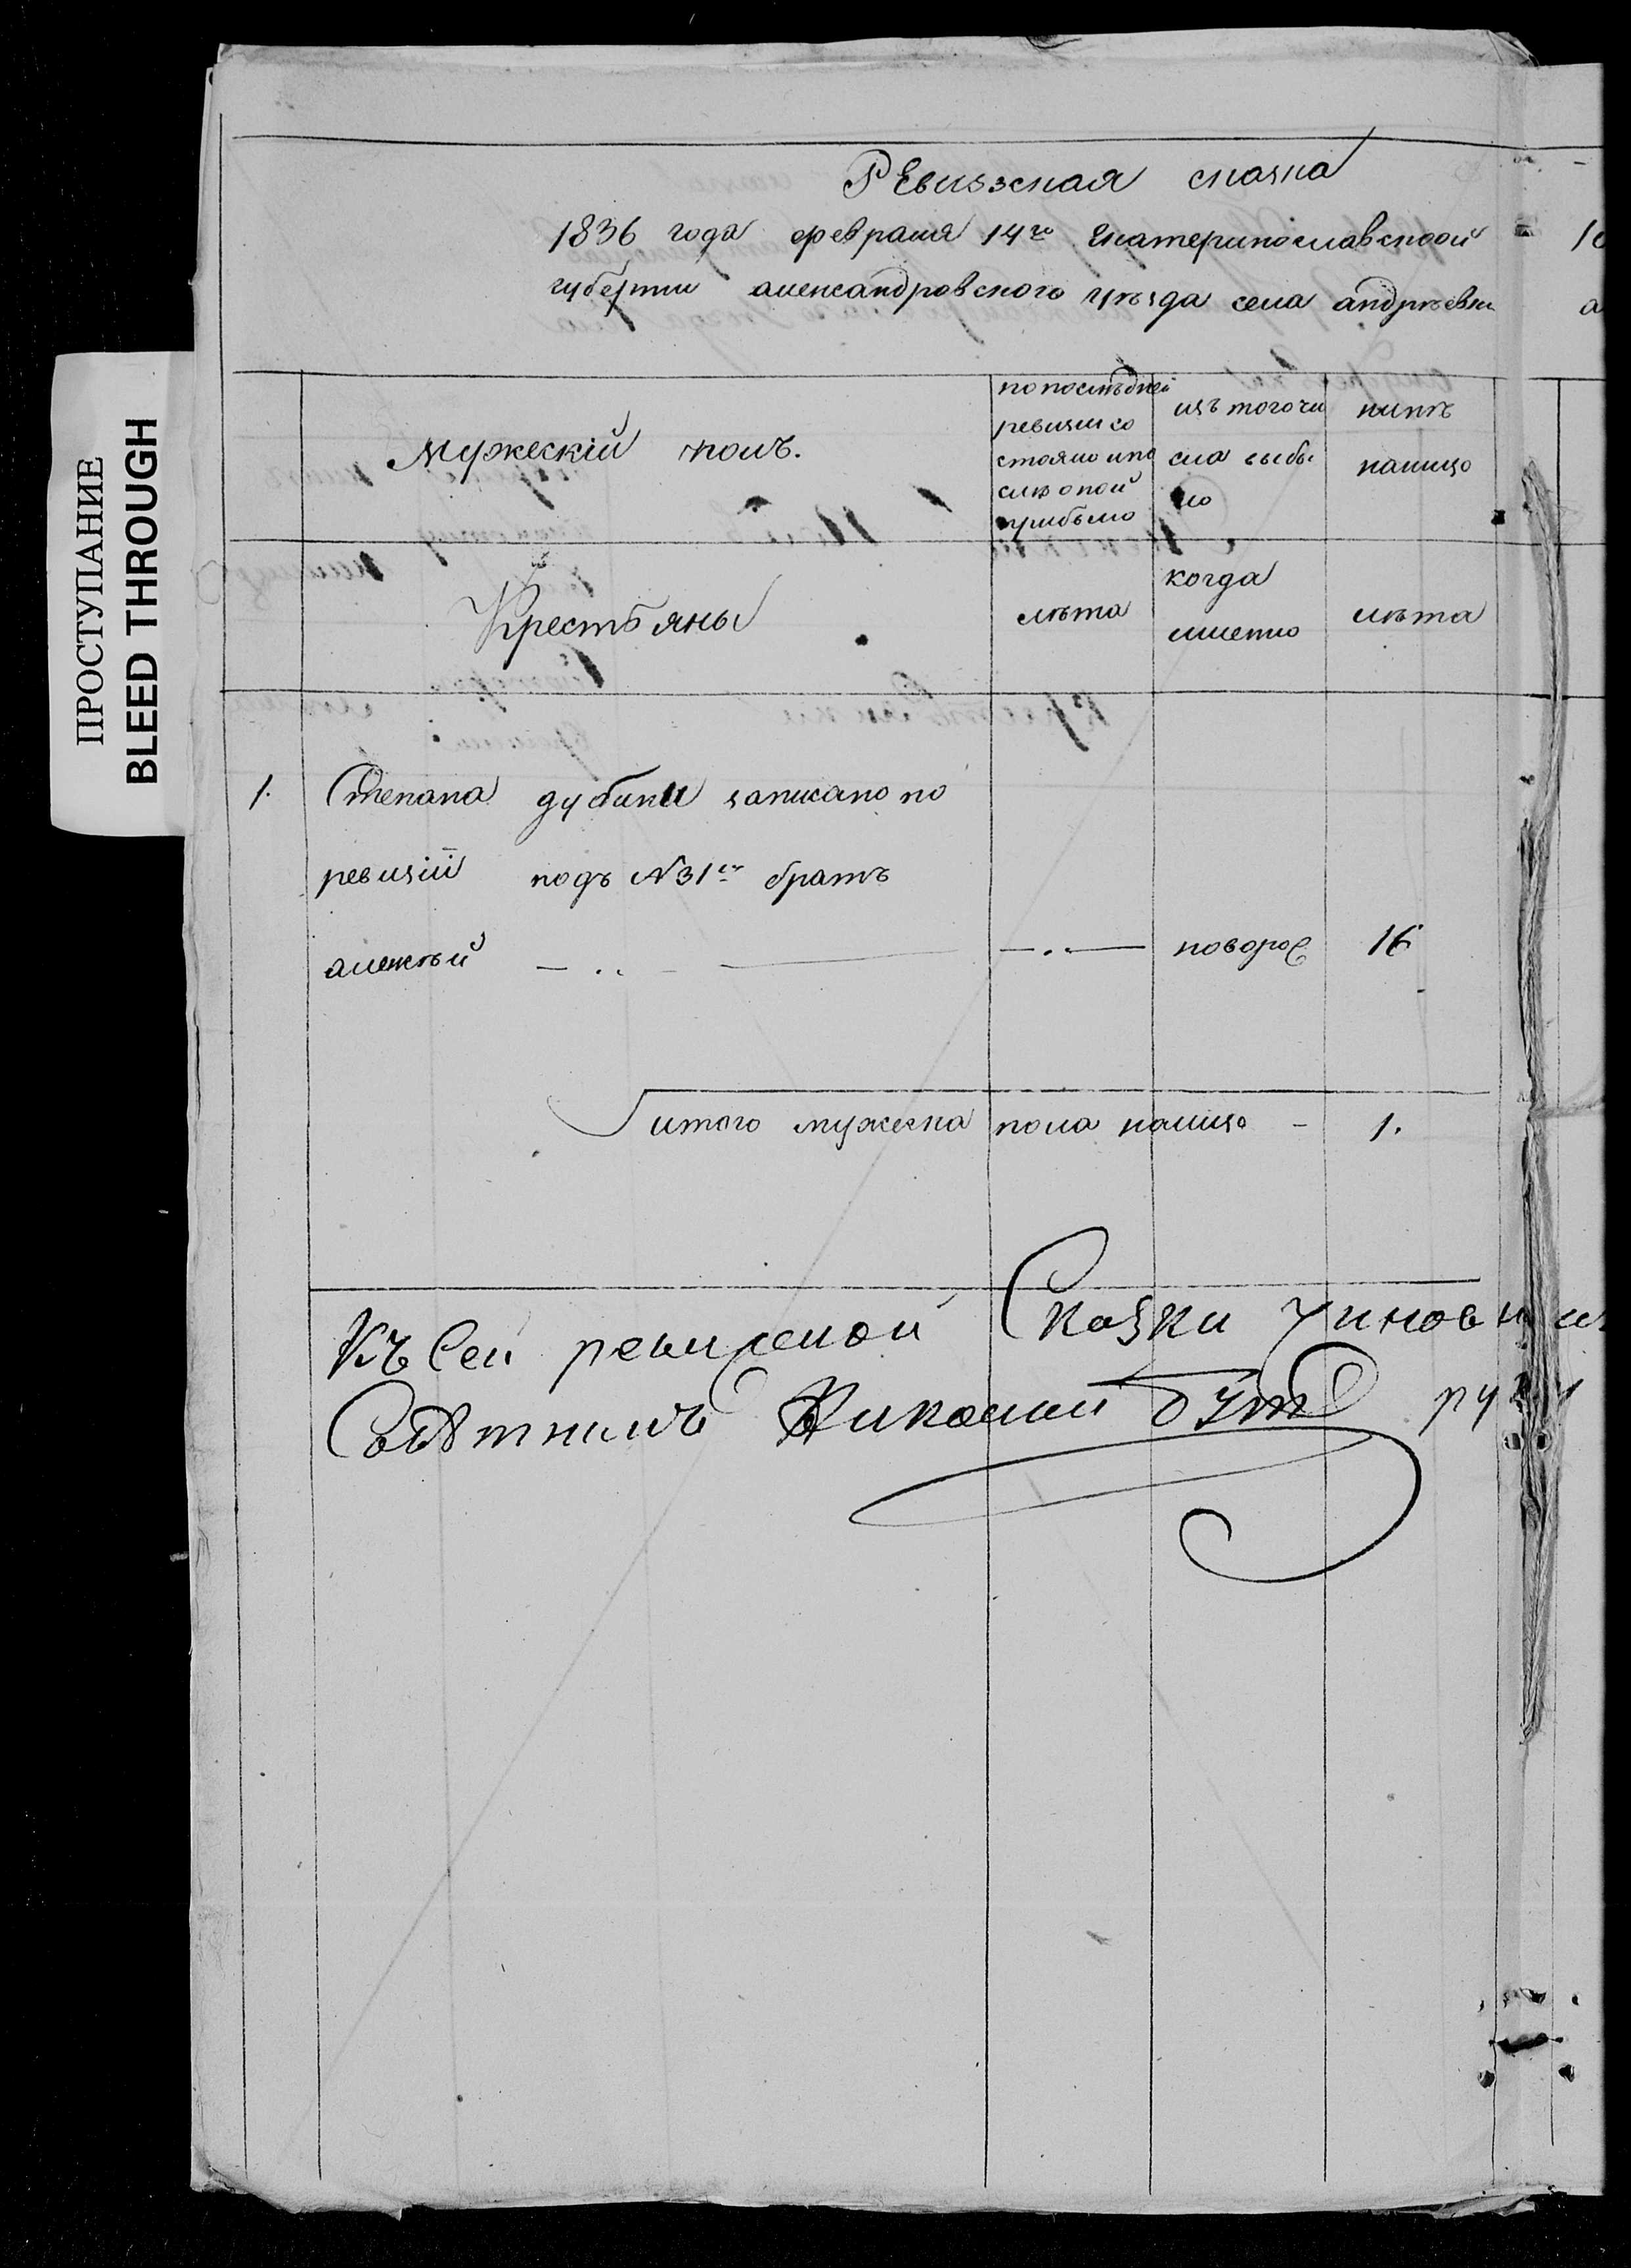 ПРОСТУПАНИЕ
BLEED THROUGH
Ревизская сказка
1836 года февраля 14го Екатеринославской
губернии александровского уѣзда села андрѣевки
мужескій полъ.
по послѣдней
ревизіи со
стояло и по
слѣ оной
прибыло
изъ того чи
сла выбы
ло
нынѣ
налицо
Крестьяны
лѣта
когда
именно
лѣта
1. Степана дубины записано по
ревизіи подъ №31м братъ
алексѣй — новорос 16
итого мужеска пола налицо - 1.
Къ Сей ревизской Сказки
Николай бут руку